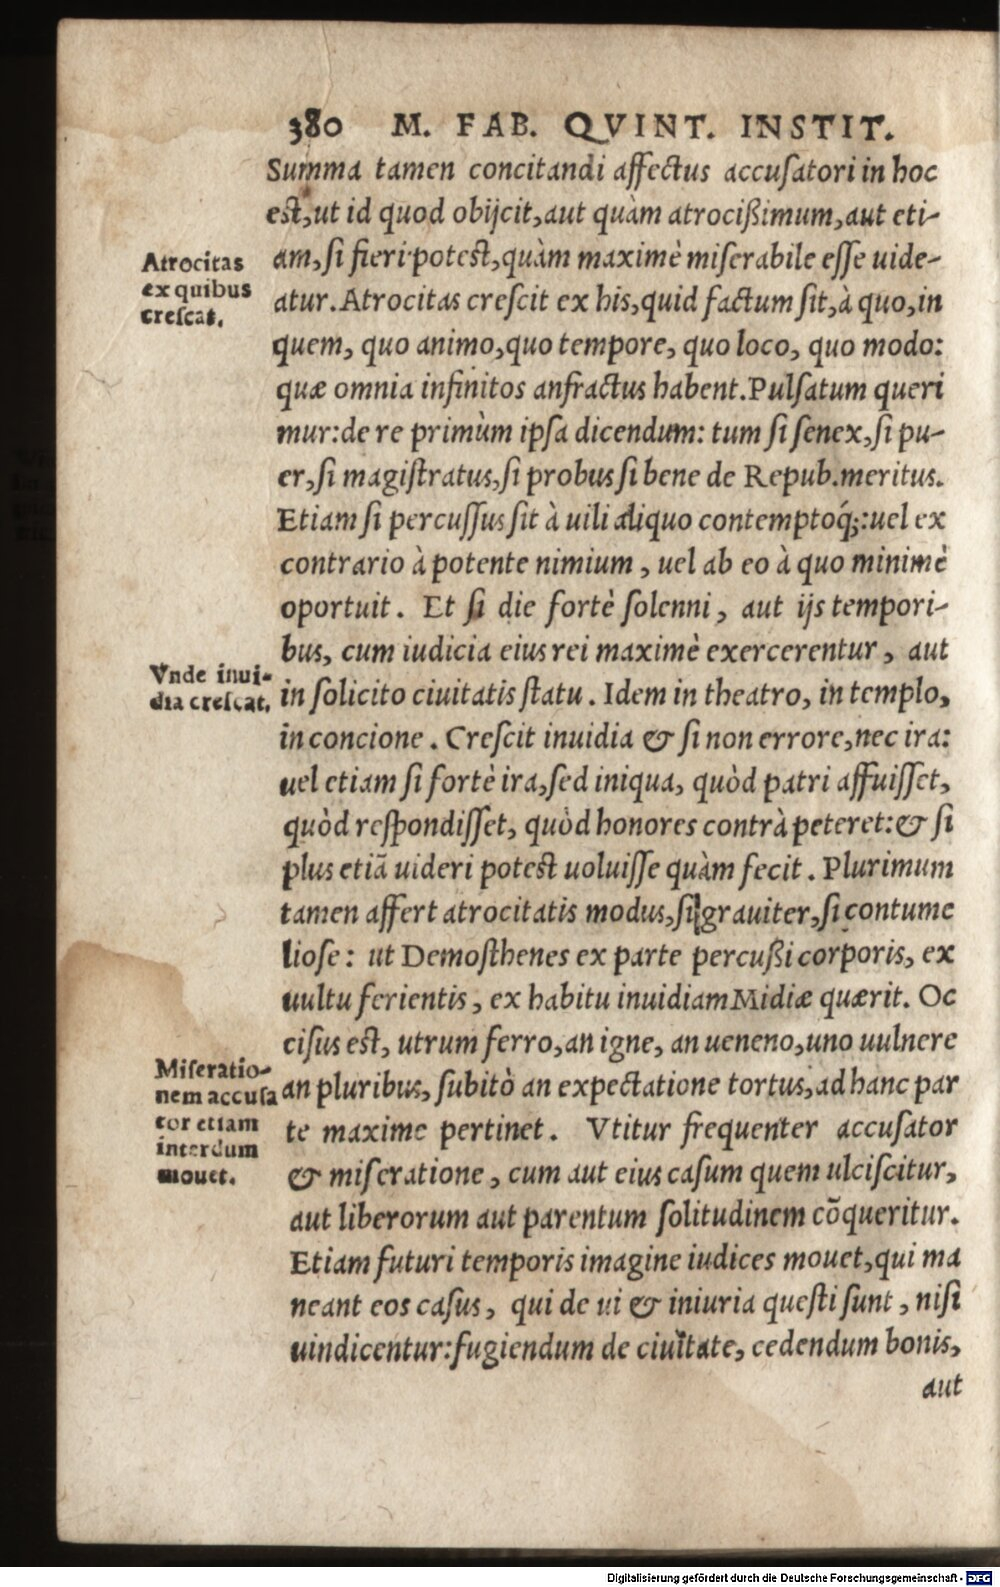 380 M. FAB. QVINT. INSTIT.
Summa tamen concitandi affectus accuſatori in hoc
est,ut id quod obijcit,aut quàm atrocißimum,aut eti-
Atrocitas
ex quibus
creſcat.
am,ſi fieri potest,quàm maximè miſerabile eſſe uide-
atur.Atrocitas creſcit ex his,quid factum ſit,à quo,in
quem, quo animo,quo tempore, quo loco, quo modo:
quæ omnia infinitos anfractus habent.Pulſatum queri
mur:de re primùm ipſa dicendum: tum ſi ſenex,ſi pu-
er,ſi magiſtratus,ſi probus ſi bene de Repub.meritus.
Etiam ſi percuſſus ſit à uili aliquo contemptoq́;:uel ex
contrario à potente nimium, uel ab eo à quo minimè
oportuit. Et ſi die fortè ſolenni, aut ijs tempori-
bus, cum iudicia eius rei maximè exercerentur, aut
Vnde inui-
dia creſcat.
in ſolicito ciuitatis ſtatu. Idem in theatro, in templo,
in concione. Creſcit inuidia & ſi non errore,nec ira:
uel etiam ſi fortè ira,ſed iniqua, quòd patri affuiſſet,
quòd reſpondiſſet, quòd honores contrà peteret:& ſi
plus etiã uideri potest uoluiſſe quàm fecit. Plurimum
tamen affert atrocitatis modus,ſi grauiter,ſi contume
lioſe: ut Demoſthenes ex parte percußi corporis, ex
uultu ferientis, ex habitu inuidiam Midiæ quærit. Oc
ciſus est, utrum ferro,an igne, an ueneno,uno uulnere
Miſeratio-
nem accuſa
tor etiam
interdum
mouet.
an pluribus, ſubitò an expectatione tortus,ad hanc par
te maxime pertinet. Vtitur frequenter accuſator
& miſeratione, cum aut eius caſum quem ulciſcitur,
aut liberorum aut parentum ſolitudinem cõqueritur.
Etiam futuri temporis imagine iudices mouet,qui ma
neant eos caſus, qui de ui & iniuria queſti ſunt, niſi
uindicentur:fugiendum de ciuitate, cedendum bonis,
aut
Digitalisierung gefördert durch die Deutsche Forschungsgemeinschaft - DFG